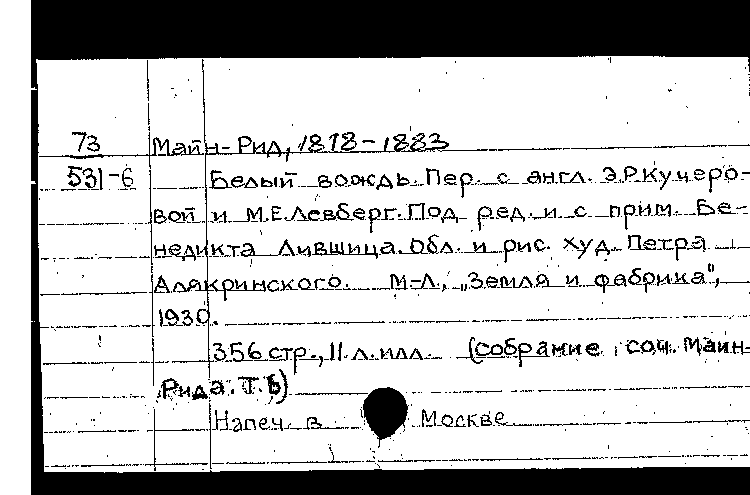 73 Майн-Рид, 1818-1883
531-6 Белый вождь. Пер. с англ. Э.Р.Кучеро-
вой и М.Е.Левберг. Под ред. и с прим. Бе-
недикта Лившица. Обл. и рис. худ. Петра
Алякринского. М-Л., „Земля и фабрика",
1930.
356 стр., 11.л.илл. (собрание соч. Майн-
Рида. Т.
Напеч. в Москве